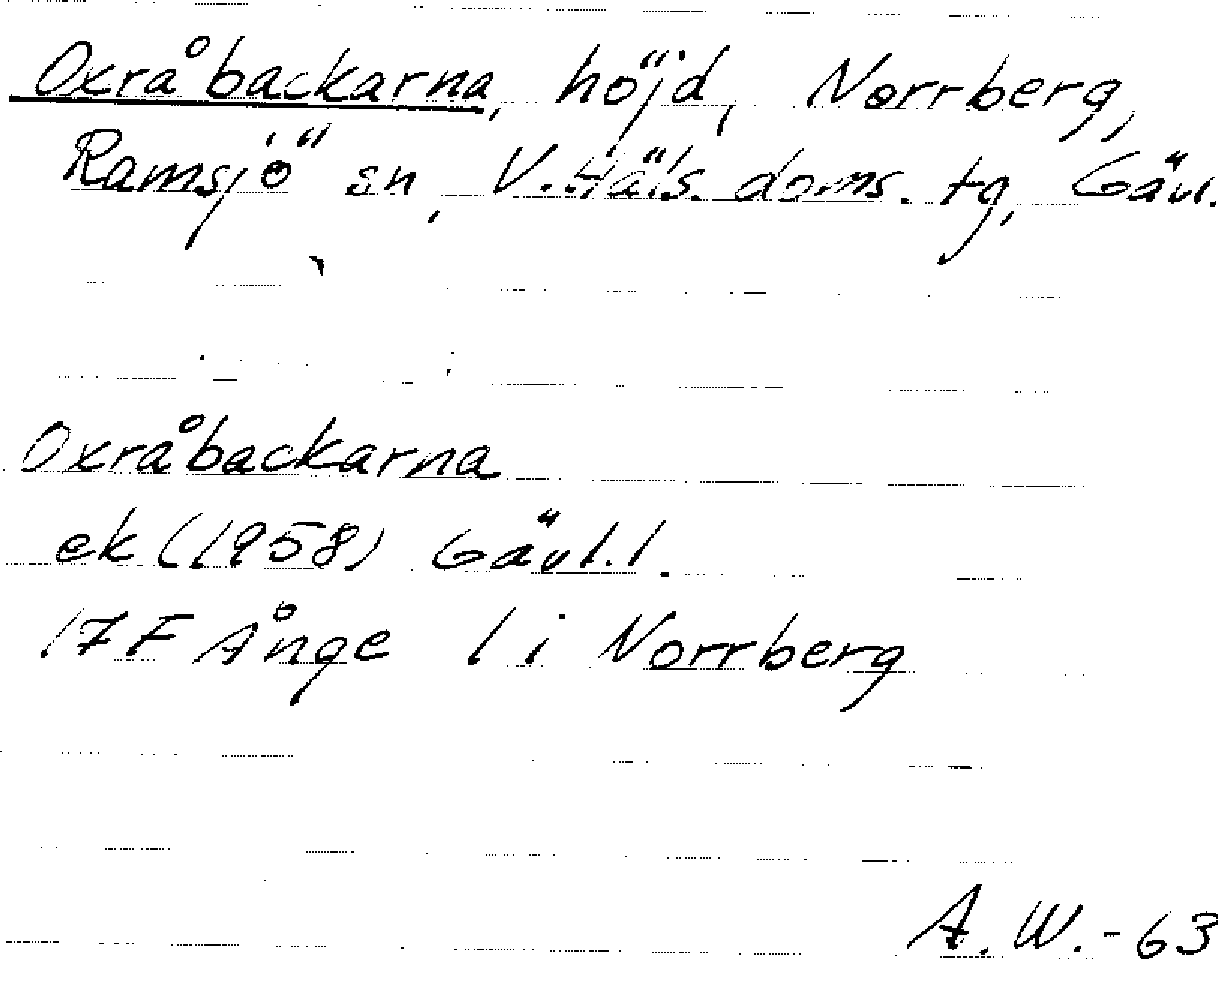 Oxråbackarna, höjd, Norrberg,
Ramsjö sn, V. Häls. doms. tg, Gävl.
Oxråbackarna
ek (1958) Gävl. l.
17F Ånge l i Norrberg
A. W. -63